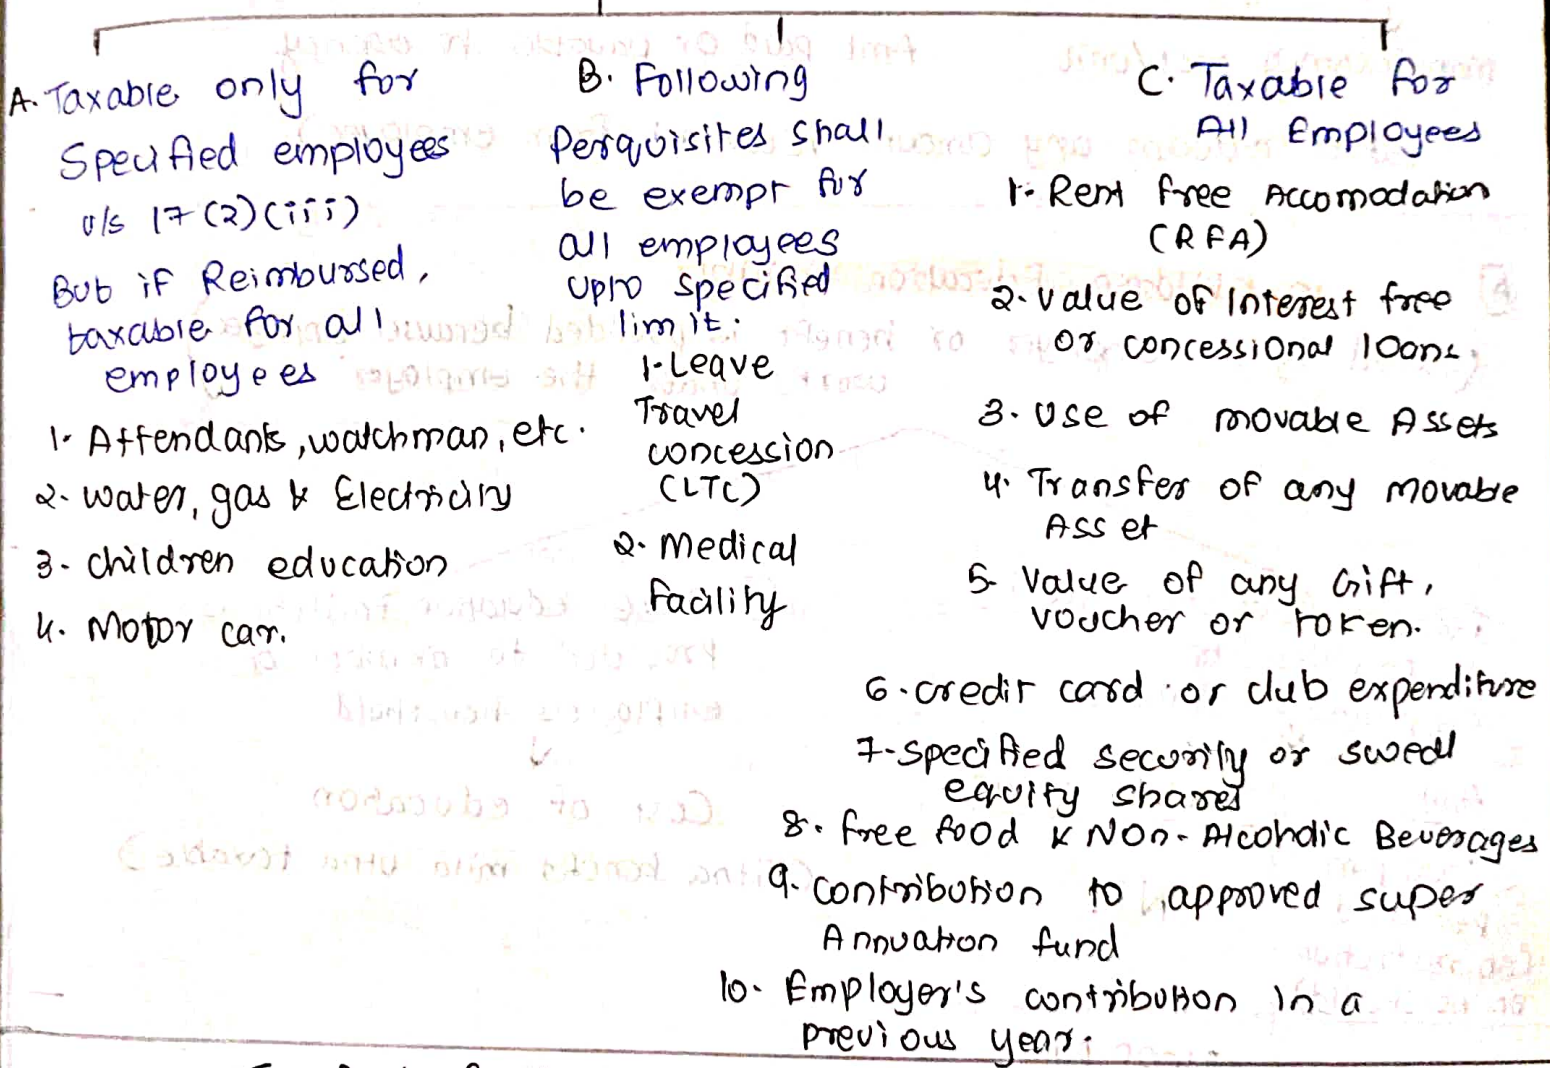 A. Taxable only for
Specified employees
u/s 17(2)(iii)
But if Reimbursed,
taxable for all
employees
1. Attendants, watchman, etc.
2. water, gas & Electricity
3. children education
4. Motor car.
B. Following
Perquisites shall
be exempt for
all employees
upto specified
limit.
1. Leave
Travel
concession
(LTC)
2. Medical
Facility
C. Taxable for
All Employees
1. Rent free Accomodation
(RFA)
2. value of Interest free
or concessional loans.
3. Use of movable Assets
4. Transfer of any movable
Asset
5. Value of any Gift,
voucher or token.
6. credit card or club expenditure
7. specified security or swedl
equity shares
8. free food & Non-Alcoholic Beverages
9. contribution to approved super
Annuation fund
10. Employer's contribution in a
previous year.